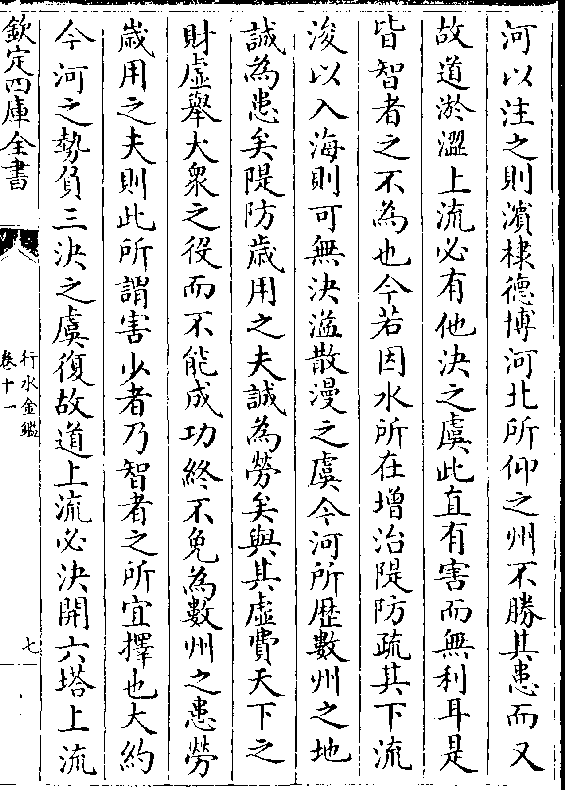 河以注之則濱棣德博河北所仰之州不勝其患而又
故道淤澀上流必有他決之虞此直有害而無利耳是
皆智者之不為也今若因水所在增治隄防疏其下流
浚以入海則可無決溢散漫之虞今河所歴數州之地
誠為患矣隄防歳用之夫誠為勞矣與其虛費天下之
財虛舉大衆之役而不能成功終不免為數州之患勞
歳用之夫則此所謂害少者乃智者之所宜擇也大約
今河之勢負三決之虞復故道上流必決開六塔上流
欽定四庫全書
行水金鑑
卷十一
七